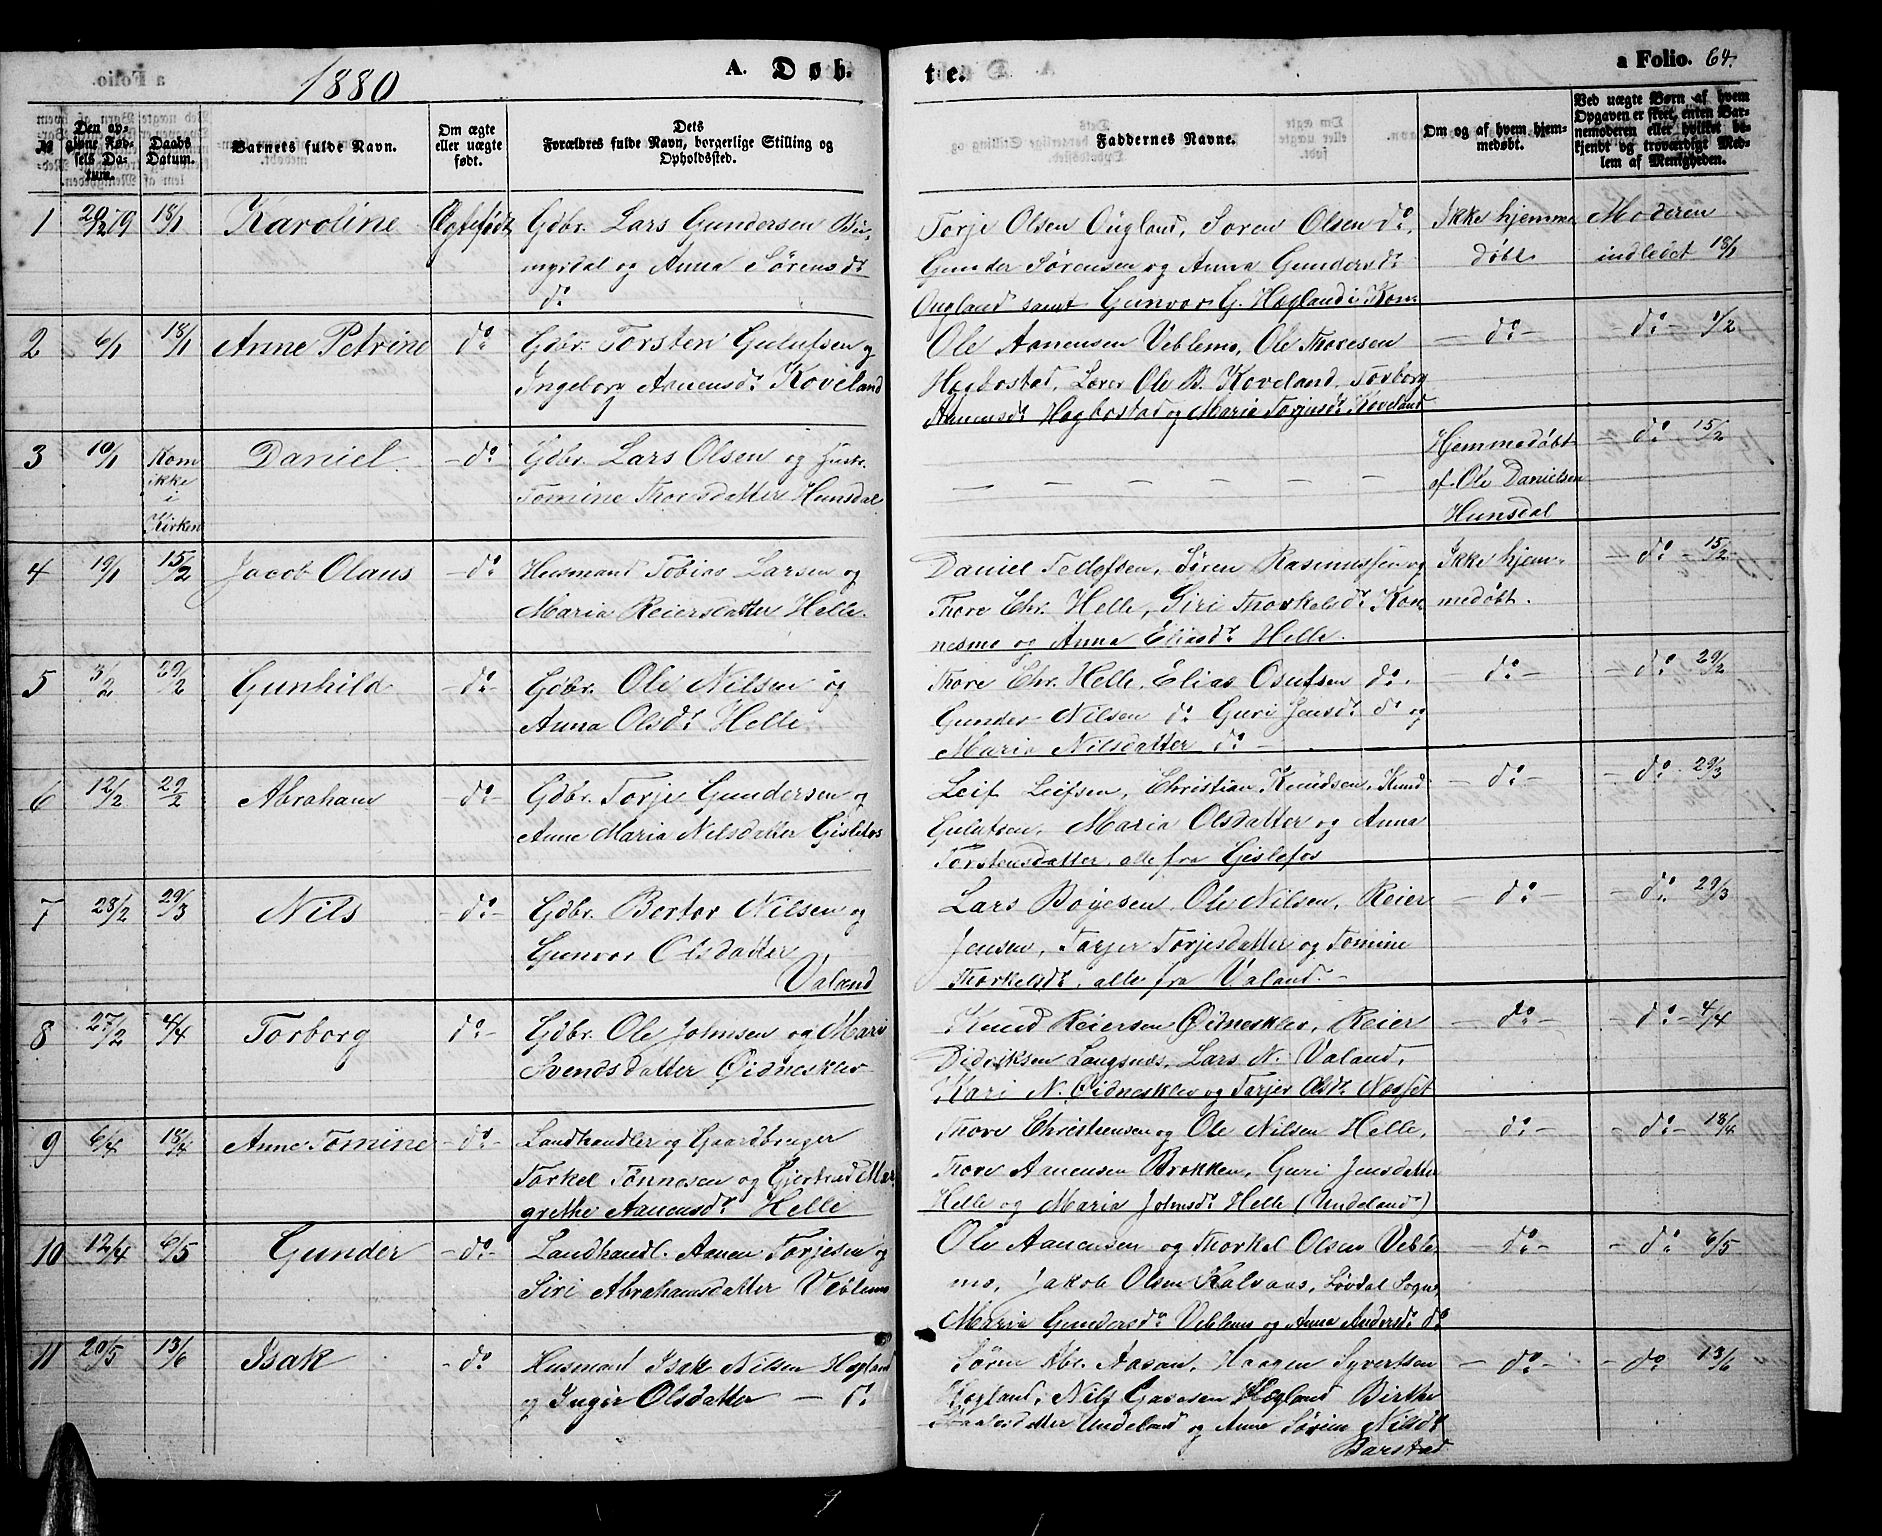 1880
A. Døb
te.
a Folio. 64.
№
Den opgivne Fødsels Datum.
Daabs Datum.
Barnets fulde Navn.
Om ægte eller uægte født.
Dets Forældres fulde Navn, borgerlige Stilling og Opholdssted.
Faddernes Navne.
Om og af hvem hjemmedøbt.
Ved uægte Børn af hvem Opgaven er skeet, enten Barnemoderen eller hvilket bekjendt og troværdigt Medlem af Menigheden.
1 29/12 79 18/1 Karoline Ægtefødt Gdbr. Lars Gundersen
myrdal og Anna Sørensdr
do
Torje Olsen Ougland, Soren Olsen do,
Gunder Sørensen og Anna Gundersdr
Ougland samt Gunvor G. Høgland i Kon:
Ikke hjemme
døbt
Moderen
indledet 18/1
2 6/1 18/1 Anne Petrine do Gdbr. Torsten Gulufsen og
Ingeborg Aanensdr Koveland
Ole Aanensen Veblemo, Ole Thoresen
Høgbostad, Lærer Ole B. Koveland, Torborg
Aanensdr Høgbostad og Marie Torjusdr Koveland
— do — — do — 1/2
3 10/1 Kom
ikke
i
Kirken
Daniel — do Gdbr. Lars Olsen og Hustr.
Tomine Thorsdatter Hunsdal
— — — — — — —
Hjemmedøbt
af Ole Danielsen
Hunsdal
— do — 15/2
4 19/1 15/2 Jacob Olaus — do Husmand Tobias Larsen og
Maria Reiersdatter Helle.
Daniel Tedofsen, Søren Rasmussen og
Thore Chr. Helle, Siri Thorkelsdr Kon
nesmo og Anna Eliasdr Helle.
Ikke hjem-
medøbt.
— do — 15/2
5 3/2 29/2 Gunhild — do — Gdbr. Ole Nilsen og
Anna Olsdr Helle
Thore Chr. Helle, Elias Osufsen do.
Gunder Nilsen do Guri Jensdr do og
Maria Nilsdatter do —
— do — — do 29/2
6 12/2 29/2 Abraham — do — Gdbr. Torje Gundersen og
Anne Maria Nilsdatter Gislefos
Leif Leifsen, Christian Knudsen, Knud
Gulufsen, Maria Olsdatter og Anna
Torstensdatter, alle fra Gislefos
— do — — do 29/3
7 28/2 29/3 Nils — do — Gdbr. Berter Nilsen og
Gunvor Olsdatter
Valand
Lars Boyesen, Ole Nilsen, Reier
Jensen, Tarjer Torjesdatter og Tomine
Thorkelsdr, alle fra Valand. —
— do — — do. 29/3
8 27/2 4/4 Torborg do — Gdbr. Ole Johnsen og Mari
Svendsdatter Øidneskler
Knud Reiersen Øidneskler, Reier
Didriksen Langsnæs, Lars N. Valand,
Kari N. Øidneskler og Tarjer Olsdr Nesset
— do — — do — 4/4
9 6/4 18/4 Anne Tomine — do — Landhandler og Gaardbruger
Torkel Tønnesen og Gjertrud Mar
grethe Aanensdr Helle
Thore Christiensen og Ole Nilsen Helle,
Thore Aanensen Brokken, Guri Jensdatter
Helle og Maria Johnsdr Helle (Undeland)
— do — — do — 18/4
10 12/4 6/5 Gunder — do — Landhandl. Aanen Torjesen og
Siri Abrahamsdatter Veblemo
Ole Aanensen og Thorkel Olsen Veble
mo, Jakob Olsen Kalvaas, Løvdal Sogn,
Maria Gundersdr Veblemo og Anna Andersdr do
— do — — do. 6/5
11 20/5 13/6 Isak — do Husmand Isak Nilsen Høgland
og Inger Olsdatter — do
Søren Abr. Aasan, Haagen Syvertsen
Høgland, Nils Høgland Birthe
Undeland og Anne Sørine Nilsdr
Barstad
— do — — do 13/6